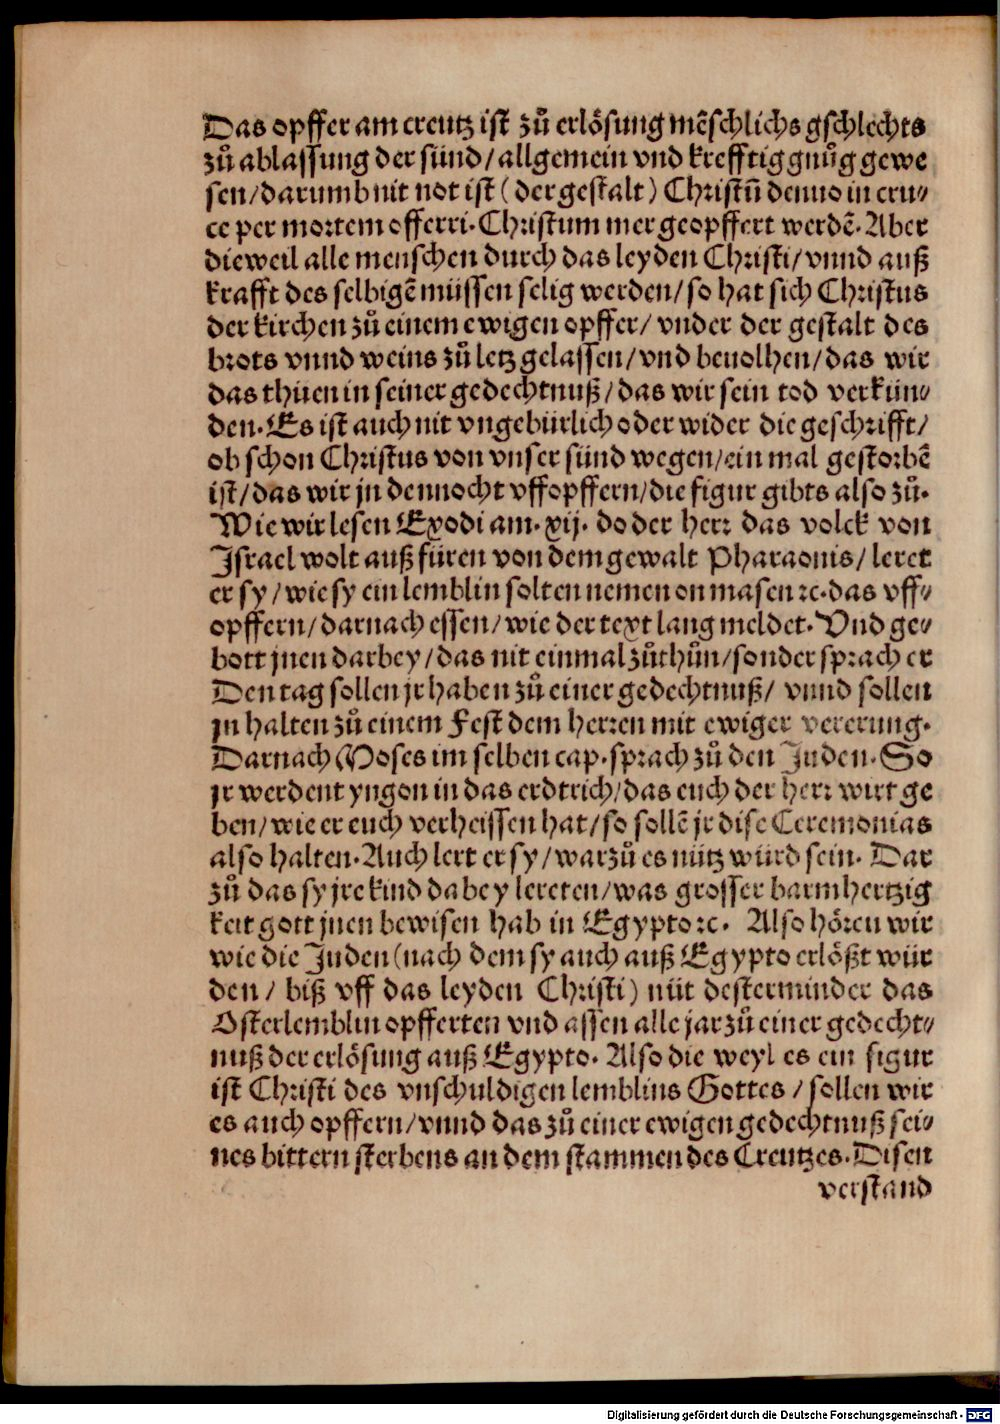 Das opffer am creutz ist zů erlösung mẽschlichs gschlechts
zů ablassung der sünd / allgemein vnd krefftig gnůg gewe
sen / darumb nit not ist ( der gestalt ) Christũ denuo in cru⸗
ce per mortem offerri. Christum mer geopffert werdẽ. Aber
dieweil alle menschen durch das leyden Christi / vnnd auß
krafft des selbigẽ müssen selig werden / so hat sich Christus
der kirchen zů einem ewigen opffer / vnder der gestalt des
brots vnnd weins zů letz gelassen / vnd beuolhen / das wir
das thüen in seiner gedechtnuß / das wir sein tod verkün⸗
den. Es ist auch nit vngebürlich oder wider die geschrifft /
ob schon Christus von vnser sünd wegen / ein mal gestorbẽ
ist / das wir jn dennocht vffopffern / die figur gibts also zů.
Wie wir lesen Exodi am. xij. do der herr das volck von
Israel wolt auß füren von dem gewalt Pharaonis / leret
er sy / wie sy ein lemblin solten nemen on masen ꝛc. das vff⸗
opffern / darnach essen / wie der text lang meldet. Vnd ge⸗
bott jnen darbey / das nit einmal zůthůn / sonder sprach er
Den tag sollen jr haben zů einer gedechtnuß / vnnd sollen
jn halten zů einem Fest dem herren mit ewiger vererung.
Darnach Moses im selben cap. sprach zů den Juden. So
jr werdent yngon in das erdtrich / das euch der herr wirt ge
ben / wie er euch verheissen hat / so sollẽ jr dise Ceremonias
also halten. Auch lert er sy / warzů es nütz würd sein. Dar
zů das sy jre kind dabey lereten / was grosser barmhertzig
keit gott jnen bewisen hab in Egypto ꝛc. Also hören wir
wie die Juden ( nach dem sy auch auß Egypto erlößt wür
den / biß vff das leyden Christi ) nüt desterminder das
Osterlemblin opfferten vnd assen alle jar zů einer gedecht⸗
nuß der erlösung auß Egypto. Also die weyl es ein figur
ist Christi des vnschuldigen lemblins Gottes / sollen wir
es auch opffern / vnnd das zů einer ewigen gedechtnuß sei⸗
nes bittern sterbens an dem stammen des Creutzes. Disen
verstand
Digitalisierung gefördert durch die Deutsche Forschungsgemeinschaft - DFG